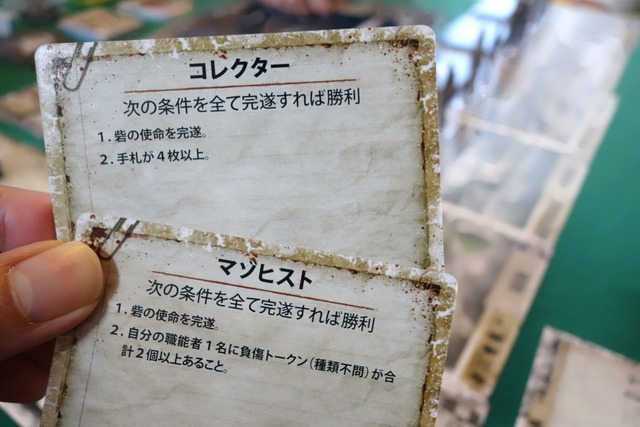 コレクター
次の条件を全て完遂すれば勝利
1. 砦の使命を完遂。
2. 手札が4枚以上。
マゾヒスト
次の条件を全て完遂すれば勝利
1. 砦の使命を完遂。
2. 自分の職能者1名に負傷トークン（種類不問）が合
計2個以上あること。